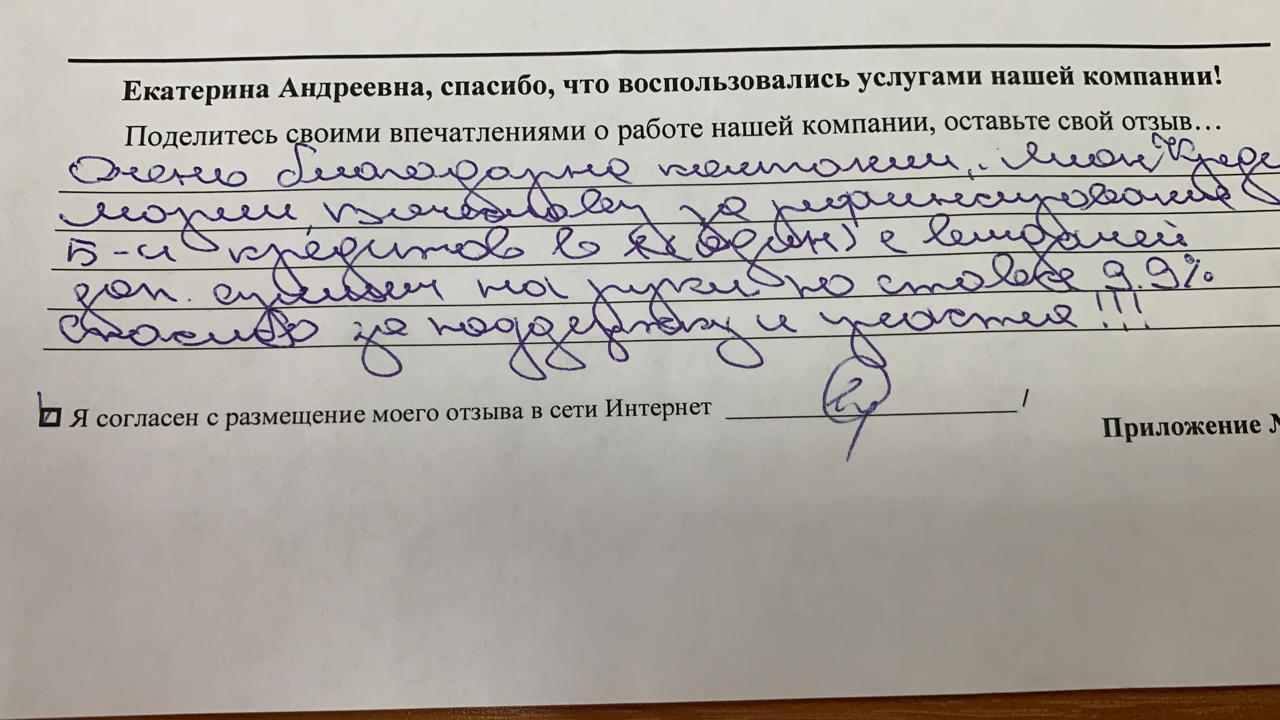 Екатерина Андреевна, спасибо, что воспользовались услугами нашей компании!
Поделитесь своими впечатлениями о работе нашей компании, оставьте свой отзыв…
Очень благодарна компании
за рефинансирование
5-и кредитов в (один) с выдачей
доп. суммы на руки по ставке 9.9%
Спасибо за поддержку и участия!!!
Я согласен с размещение моего отзыва в сети Интернет /
Приложение №